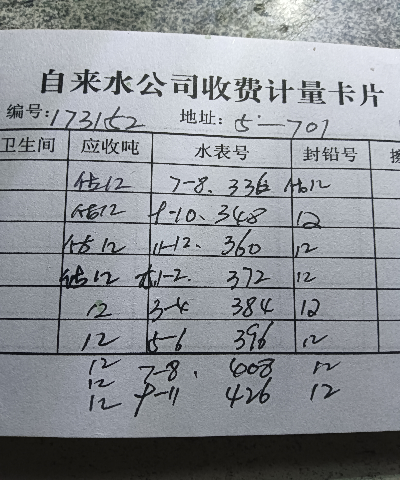 自来水公司收费计量卡片
编号:173152 地址:5-701
卫生间 应收吨 水表号 封铅号
估12 7-8. 336 估12
估12 9-10. 348 12
估12 11-12. 360 12
估12 1-2. 372 12
12 3-4 384 12
12 5-6 396 12
12 7-8. 408 12
12
12 9-11 426 12